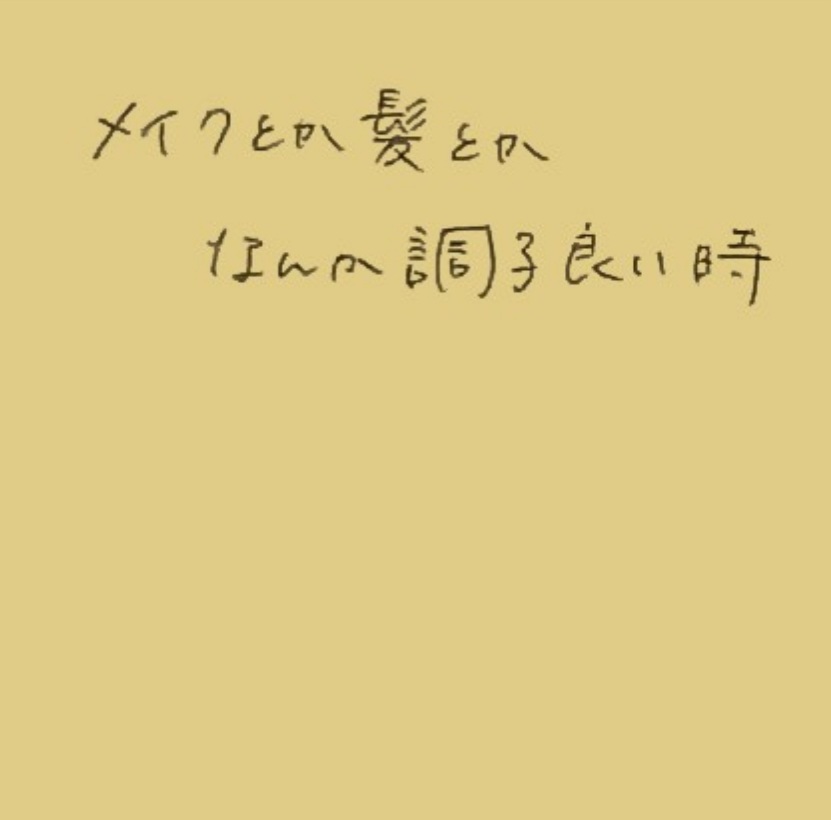 メイクとか髪とか
なんか調子良い時